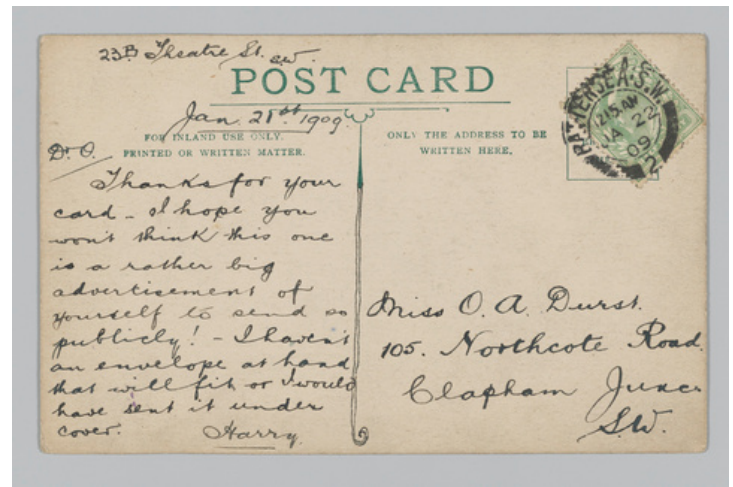 23B Theatre St. S.W.
POST CARD
Jan. 21st 1909
FOR INLAND USE ONLY.
PRINTED OR WRITTEN MATTER.
ONLY THE ADDRESS TO BE
WRITTEN HERE.
BATTERSEA. S.W.
12.15 AM
JA 22
09
2
Dr O.
Thanks for your
card – I hope you
won't think this one
is a rather big
advertisement of
yourself to send so
publicly! – I haven't
an envelope at hand
that will fit or I would
have sent it under
cover. Harry
Miss O. A. Durst.
105. Northcote Road.
Clapham Junc.
S.W.